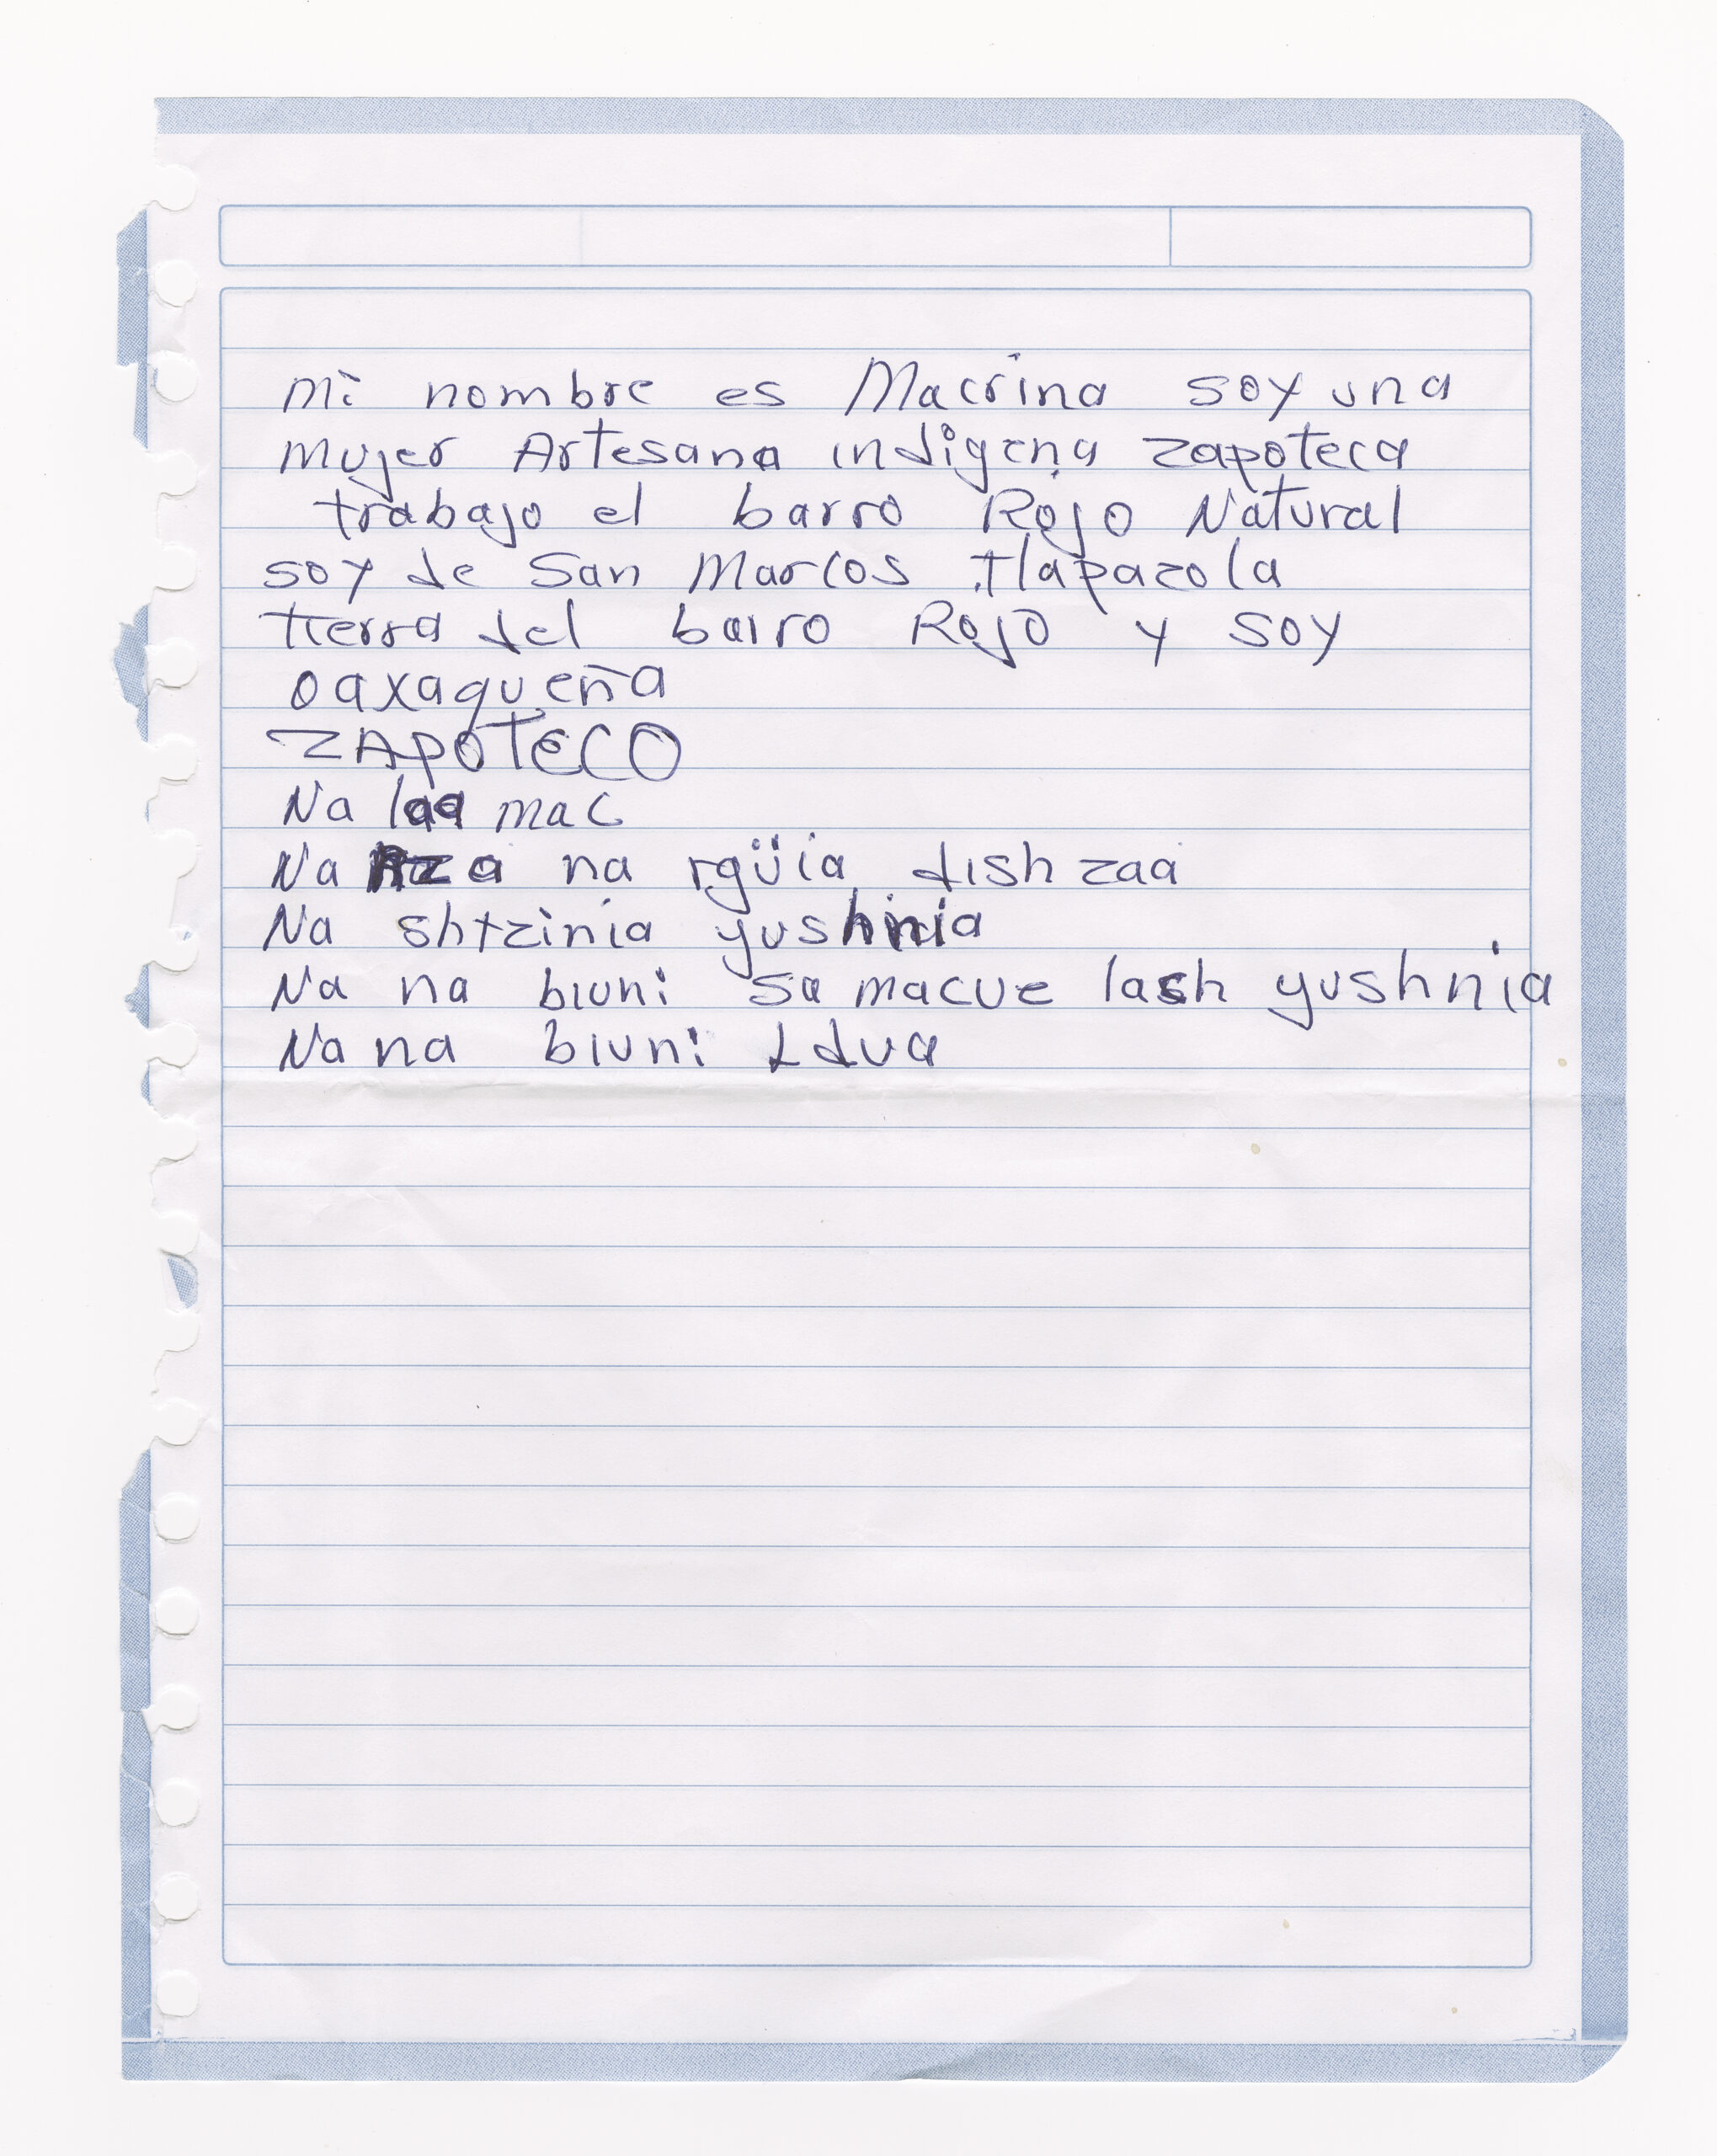 mi nombre es Macrina soy una
mujer Artesana indigena zapoteca
trabajo el barro Rojo Natural
soy de San Marcos tlapazola
tierra del barro Rojo y soy
oaxaqueña
ZAPOTECO
Na laa mac
Na na rgüia dish zaa
Na shtzinia yushnia
Na na biuni sa macue lash yushnia
Na na biuni Ldua